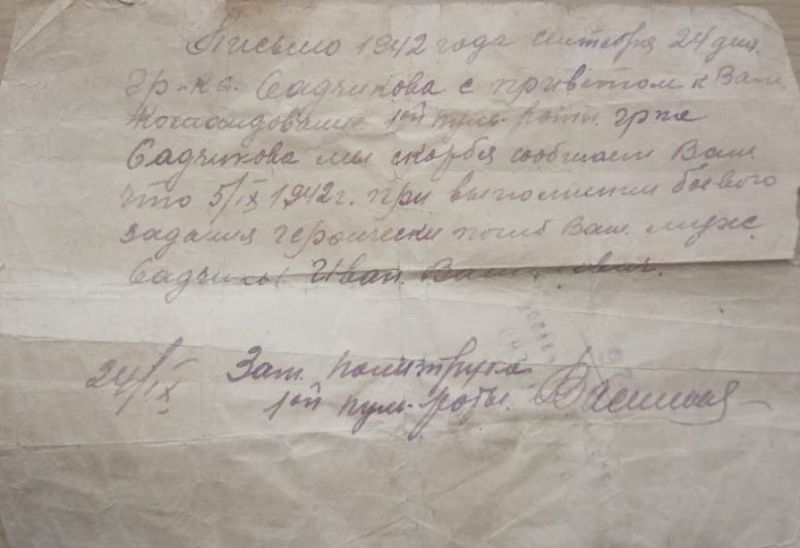 Письмо 1942 года сентября 24 дня.
Гр-ка Садчикова с приветом к Вам.
Командование 1ой пуль-роты. гр-ка
Садчикова мы скорбя сообщаем Вам
что 5/IX 1942 г. при выполнении боевого
задания героически погиб Ваш муж
Садчиков Иван
24/IX Зам. политрука
1ой пуль-роты.